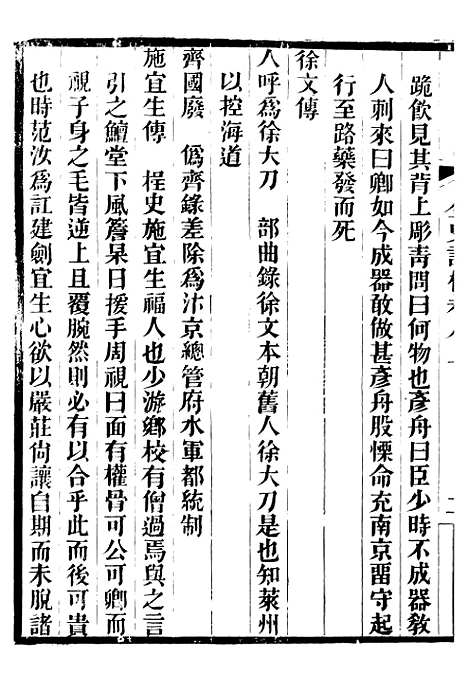 跪飲見其背上彫靑問曰何物也彥舟曰臣少時不成器敎
人刺來曰卿如今成器敢做甚彥舟股慄命充南京畱守起
行至路藥發而死
徐文傳
人呼爲徐大刀　部曲錄徐文本朝舊人徐大刀是也知萊州
以控海道
齊國廢　僞齊錄差除爲汴京總管府水軍都統制
施宜生傳　桯史施宜生福人也少游鄉校有僧過焉與之言
引之鱣堂下風簷杲日援手周視曰面有權骨可公可卿而
視子身之毛皆逆上且覆腕然則必有以合乎此而後可貴
也時范汝爲訌建劍宜生心欲以嚴莊尙讓自期而未脫諸